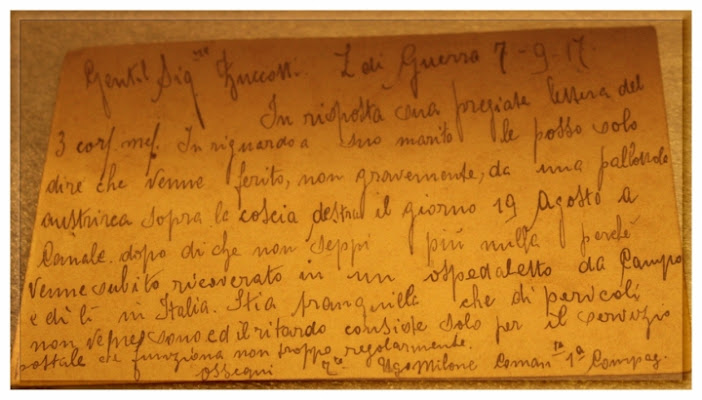 Gentil Sig.ra Zuccotti. Z di Guerra 7-9-17.
In risposta sua pregiata lettera del
3 corr. mese. In riguardo a suo marito le posso solo
dire che venne ferito, non gravemente, da una pallottola
austriaca sopra la coscia destra il giorno 19 Agosto a
Canale. dopo di che non seppi più nulla perchè
venne subito ricoverato in un ospedaletto da Campo
e di lì in Italia. Stia tranquilla che di pericoli
non ve ne sono ed il ritardo consiste solo per il servizio
postale che funziona non troppo regolarmente.
Ossequi Ugo Milone Coman 1ª Compag.